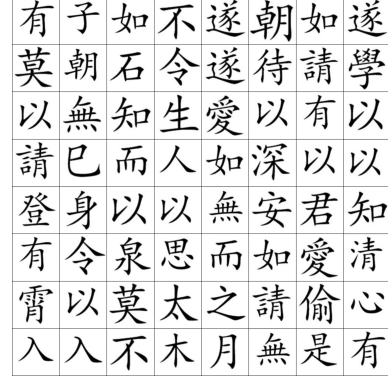 有子如不遂朝如遂
莫朝石令遂待請學
以無知生愛以有以
請巳而人如深以以
登身以以無安君知
有令泉思而如愛清
霄以莫太之請偷心
入入不木月無是有